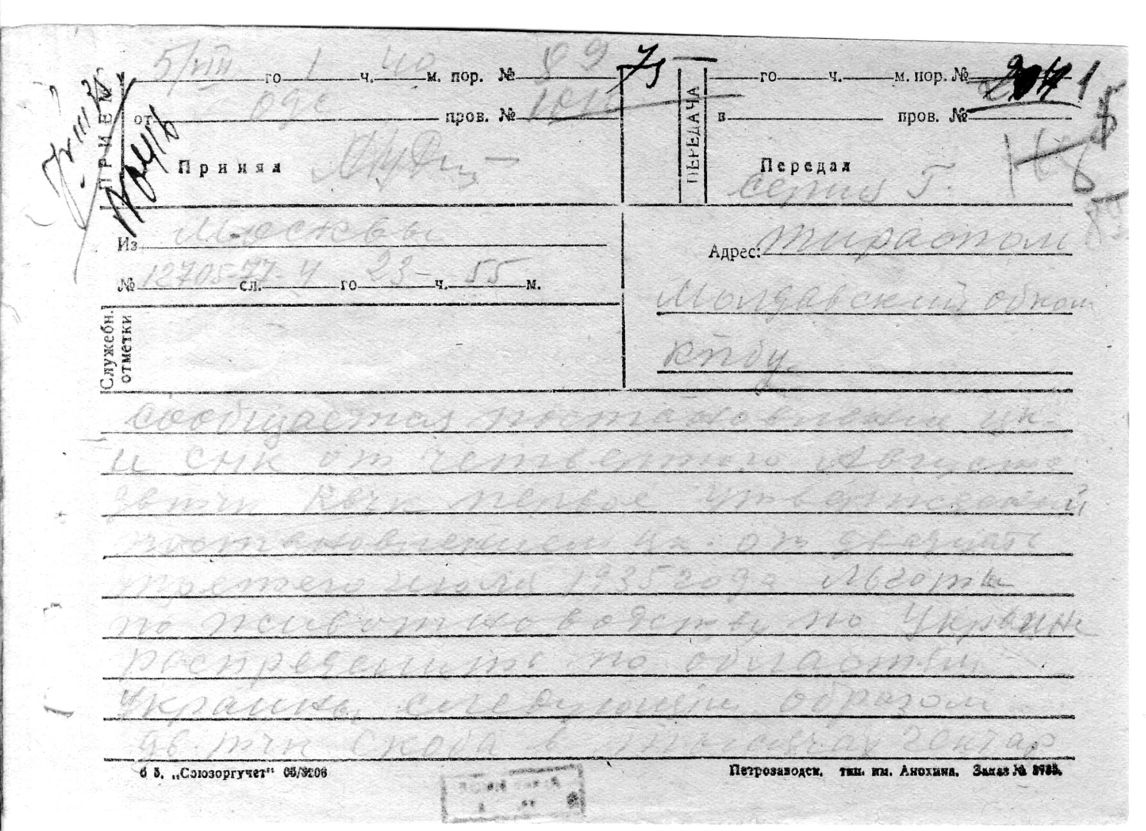 ПРИЕМ
5/VIII го 1 ч. 40 м. пор. № 89
от Одс пров. №
Принял
Из Москвы
№ 12705 77 сл. 4 го 23 ч. 55 м.
Служебн. отметки
ПЕРЕДАЧА
го ч. м. пор. №
в пров. №
Передал
серия Г.
Адрес: Тирасполь
Молдавский обком
КПбУ
сообщается постановление ЦК
и СНК от четвертого Августа
двтчк Квчк первое утвержденный
постановлением ЦК от двадцать
третьего июля 1935 года льготы
по животноводству по Украине
распределить по областям
Украины следующим образом
двтчк скоба в тысячах гектар
ф 5. „Союзоргучет" 05/3206
Петрозаводск, тип. им. Анохина. Заказ №